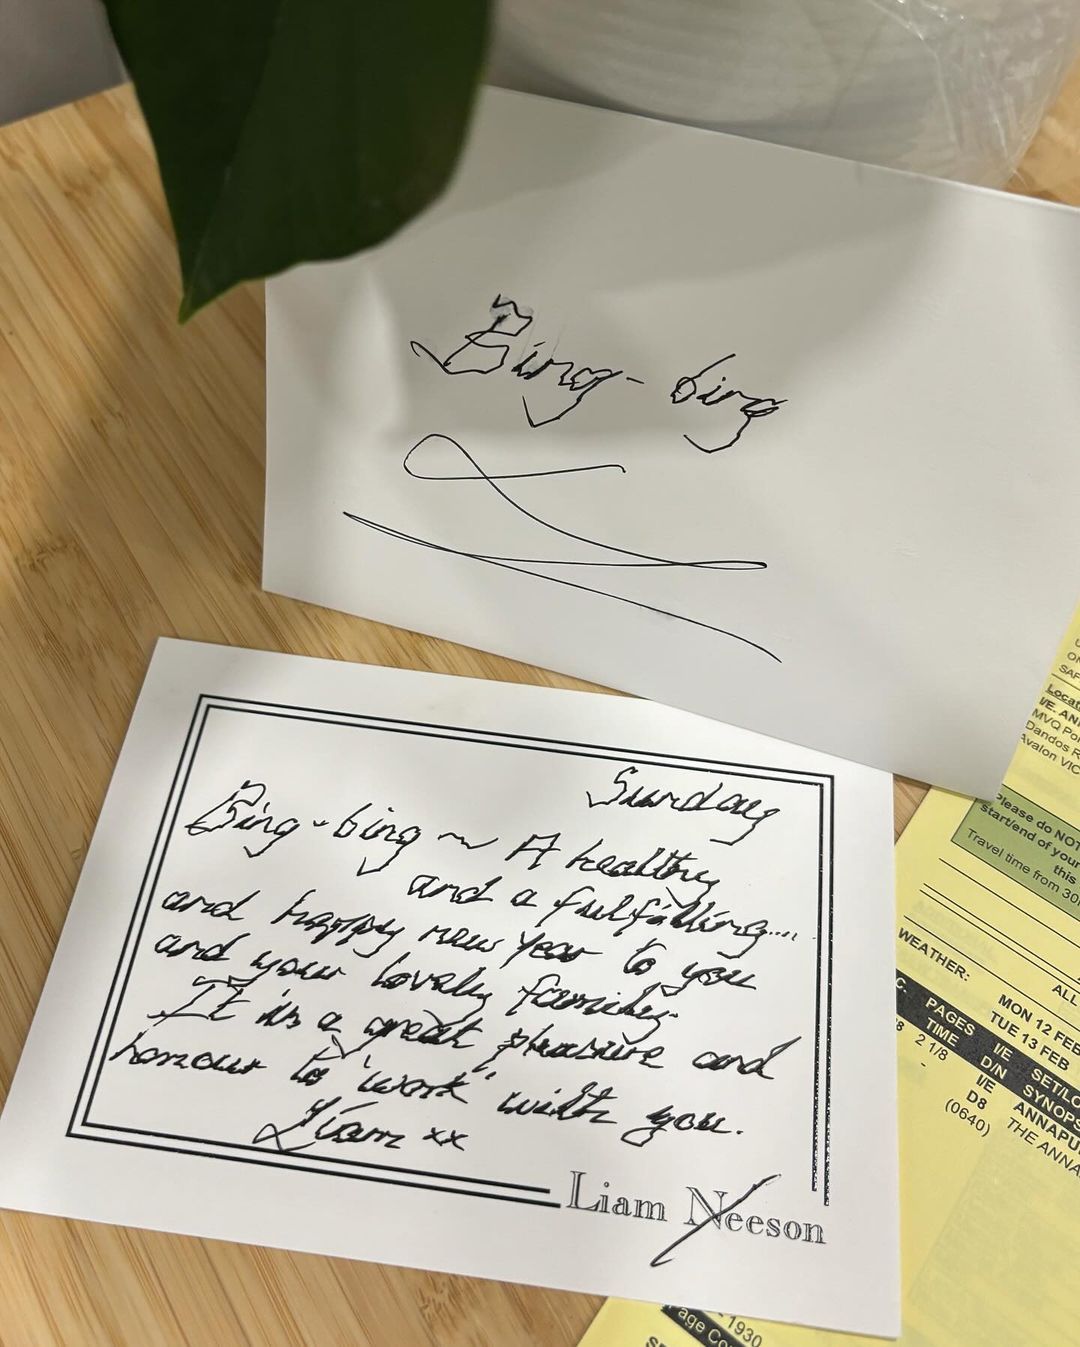 Bing-bing
Sunday
Bing-bing ~ A healthy
and a fulfilling....
and happy new year to you
and your lovely family.
It is a great pleasure and
honour to 'work' with you.
Liam xx
Liam Neeson
SAF
Locat
I/E. AN
MVQ Po
Dandos R
Avalon VIC
Please do NOT
start/end of your
this
Travel time from 30
WEATHER:
ALL
MON 12 FEB
TUE 13 FEB
C. PAGES I/E SET/LO
TIME D/N SYNOPS
8 2 1/8 I/E ANNAPU
- D8 THE ANNA
(0640)
- 1930
Page Co